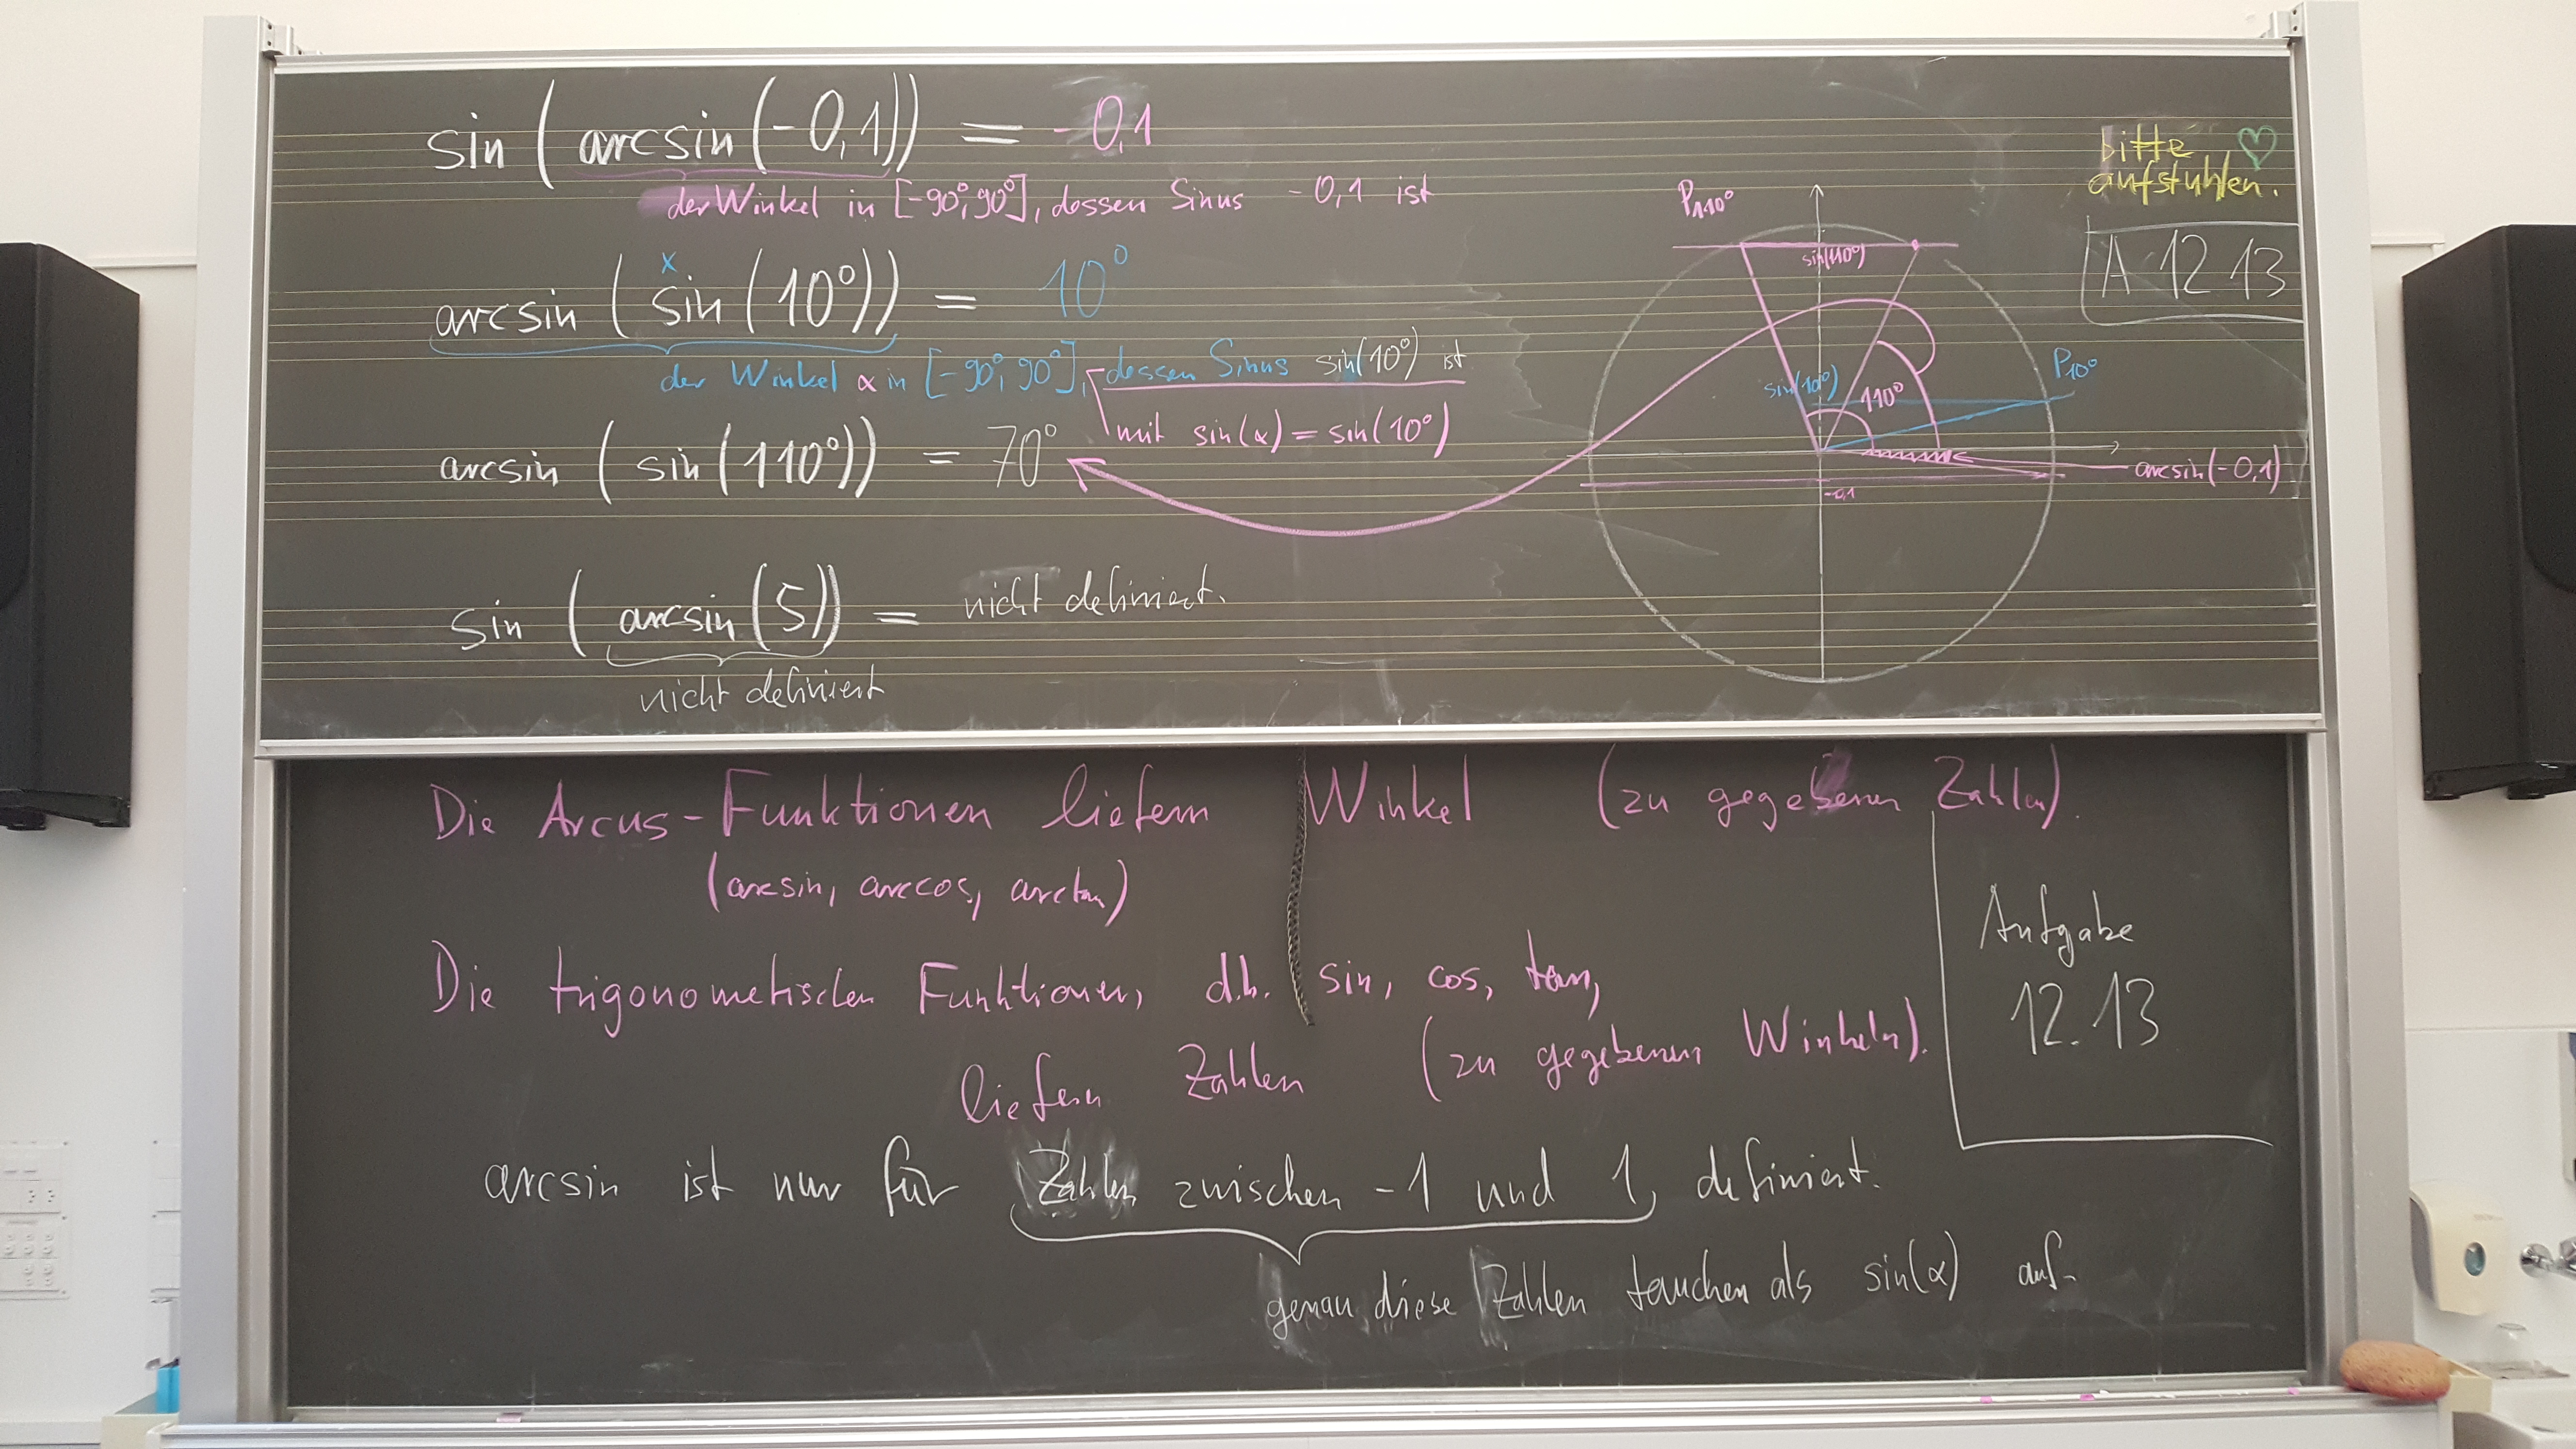 sin (arcsin(-0,1)) = -0,1
der Winkel in [-90°; 90°], dessen Sinus -0,1 ist
x
arcsin (sin (10°)) = 10°
der Winkel α in [-90°; 90°], dessen Sinus sin(10°) ist
mit sin(α) = sin(10°)
arcsin (sin (110°)) = 70°
sin (arcsin (5)) = nicht definiert.
nicht definiert
P110°
sin(110°)
sin(10°)
110°
P10°
arcsin(-0,1)
-0,1
bitte
aufstuhlen.
A 12 13
Die Arcus-Funktionen liefern Winkel (zu gegebenen Zahlen).
(arcsin, arccos, arctan)
Die trigonometrischen Funktionen, d.h. sin, cos, tan,
liefern Zahlen (zu gegebenen Winkeln).
Aufgabe
12.13
arcsin ist nur für Zahlen zwischen -1 und 1 definiert.
genau diese Zahlen tauchen als sin(α) auf.